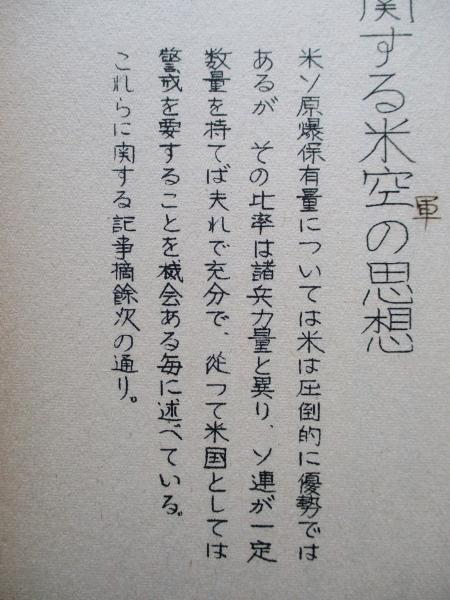 関する米空の思想
軍
米ソ原爆保有量については米は圧倒的に優勢では
あるが その比率は諸兵力量と異り、ソ連が一定
数量を持てば夫れで充分で、従つて米国としては
警戒を要することを機会ある毎に述べている。
これらに関する記事摘録次の通り。